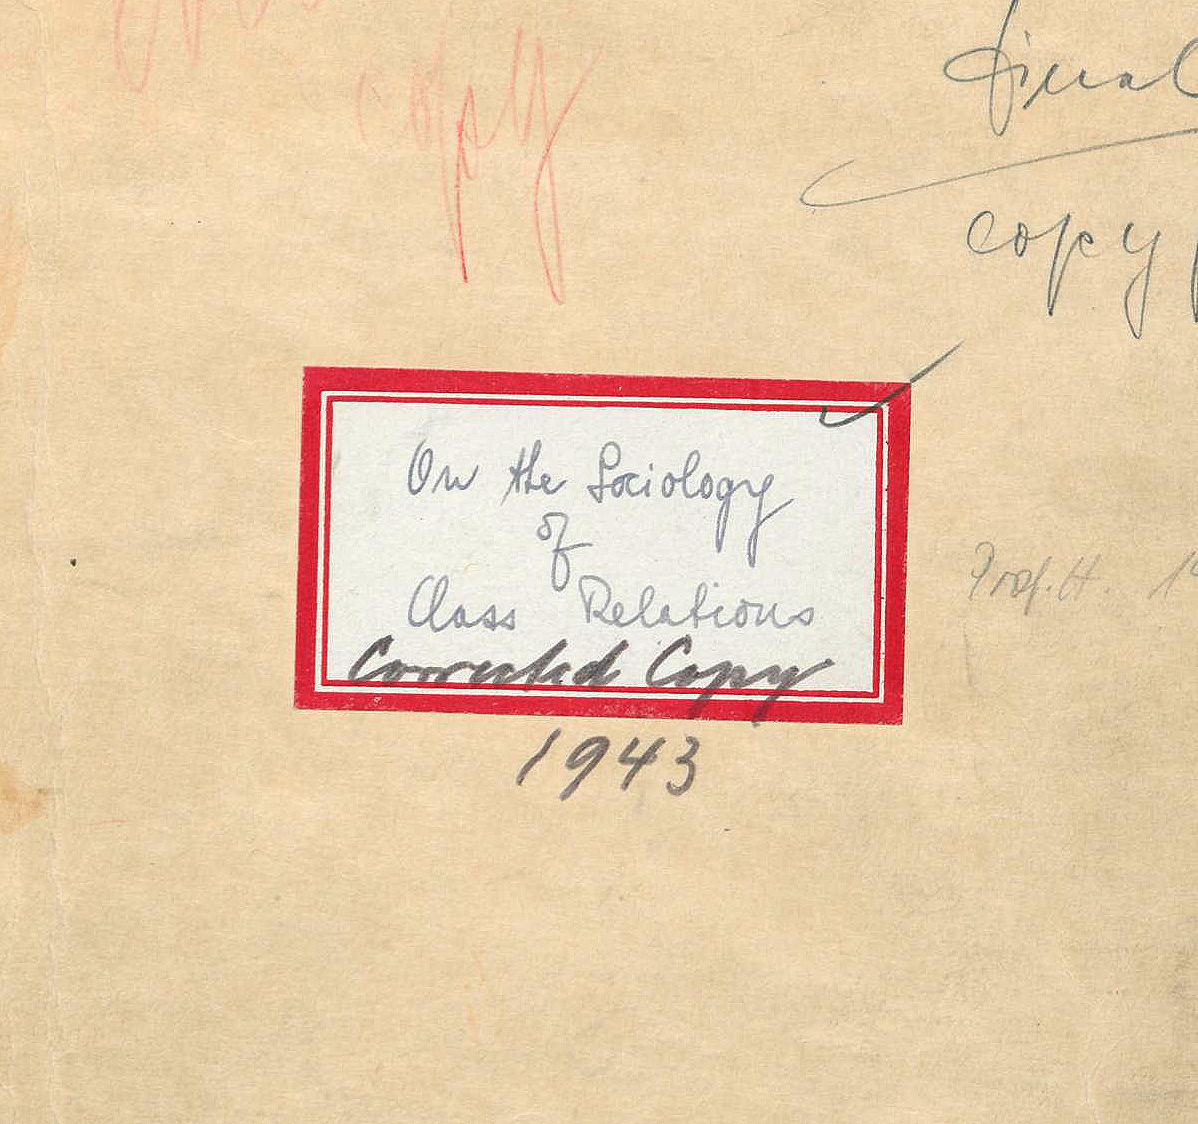 copy
final
copy
On the Sociology
of
Class Relations
Corrected Copy
1943
Prof. H.